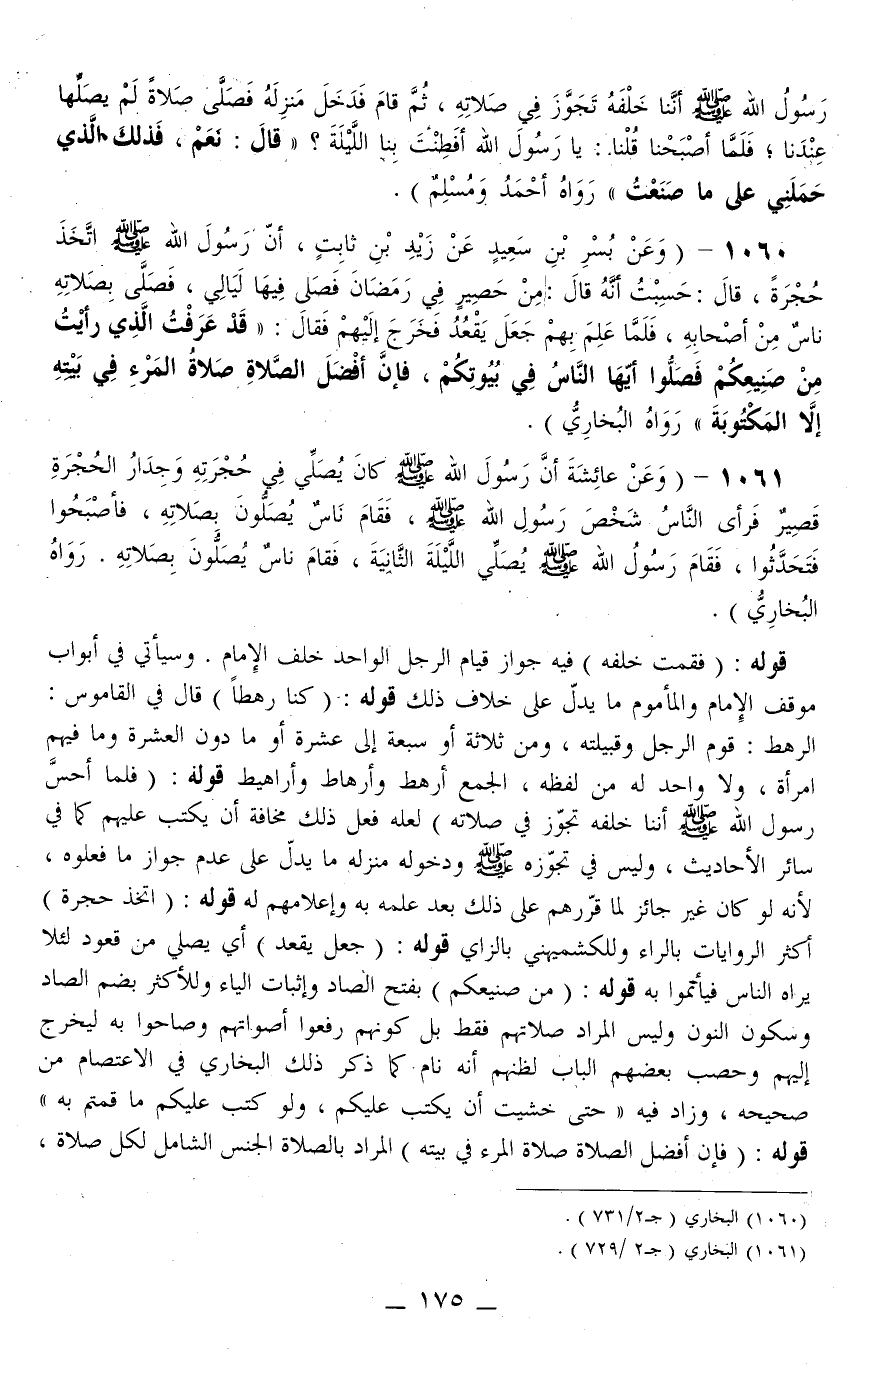 رَسُولُ الله ﷺ أنَّنا خَلْفَهُ تَجَوَّزَ فِي صَلاتِهِ ، ثُمَّ قامَ فَدَخَلَ مَنزِلَهُ فَصَلَّى صَلاةً لَمْ يصلِّها
عِنْدَنا ؛ فَلَمَّا أصْبَحْنا قُلْنا : يا رَسُولَ الله أفَطِنْتَ بِنا اللَّيْلَةَ ؟ « قالَ : نَعَمْ ، فَذلكَ الَّذي
حَمَلَنِي على ما صَنَعْتُ » رَوَاهُ أحْمَدُ وَمُسْلِمٌ ) .
١٠٦٠ – ( وَعَنْ بُسْرِ بْنِ سَعِيدٍ عَنْ زَيْدِ بْنِ ثابِتٍ ، أنّ رَسُولَ الله ﷺ اتَّخَذَ
حُجْرَةً ، قالَ : حَسِبْتُ أنَّهُ قالَ : مِنْ حَصِيرٍ فِي رَمَضَانَ فَصَلى فِيهَا لَيَالِي ، فَصَلَّى بِصَلاتِهِ
ناسٌ مِنْ أصْحابِهِ ، فَلَمَّا عَلِمَ بِهِمْ جَعَلَ يَقْعُدُ فَخَرَجَ إلَيْهِمْ فَقالَ : « قَدْ عَرَفْتُ الَّذِي رأيْتُ
مِنْ صَنِيعِكُمْ فَصَلُّوا أيّهَا النَّاسُ فِي بُيُوتِكُمْ ، فإنَّ أفْضَلَ الصَّلاةِ صَلاةُ المَرْءِ فِي بَيْتِهِ
إلَّا المَكْتُوبَةَ » رَوَاهُ البُخارِيُّ ) .
١٠٦١ – ( وَعَنْ عائِشَةَ أنَّ رَسُولَ الله ﷺ كانَ يُصَلِّي فِي حُجْرَتِهِ وَجِدَارُ الحُجْرَةِ
قَصِيرٌ فَرأى النَّاسُ شَخْصَ رَسُولِ الله ﷺ ، فَقَامَ نَاسٌ يُصَلُّونَ بِصَلاتِهِ ، فأصْبَحُوا
فَتَحَدَّثُوا ، فَقَامَ رَسُولُ الله ﷺ يُصَلِّي اللَّيْلَةَ الثَّانِيَةَ ، فَقامَ ناسٌ يُصَلُّونَ بِصَلاتِهِ . رَوَاهُ
البُخارِيُّ ) .
قوله : ( فقمت خلفه ) فيه جواز قيام الرجل الواحد خلف الإمام . وسيأتي في أبواب
موقف الإمام والمأموم ما يدلّ على خلاف ذلك قوله : ( كنا رهطاً ) قال في القاموس :
الرهط : قوم الرجل وقبيلته ، ومن ثلاثة أو سبعة إلى عشرة أو ما دون العشرة وما فيهم
امرأة ، ولا واحد له من لفظه ، الجمع أرهط وأرهاط وأراهيط قوله : ( فلما أحسَّ
رسول الله ﷺ أننا خلفه تجوّز في صلاته ) لعله فعل ذلك مخافة أن يكتب عليهم كما في
سائر الأحاديث ، وليس في تجوّزه ﷺ ودخوله منزله ما يدلّ على عدم جواز ما فعلوه ،
لأنه لو كان غير جائز لما قرّرهم على ذلك بعد علمه به وإعلامهم له قوله : ( اتخذ حجرة )
أكثر الروايات بالراء وللكشميهني بالزاي قوله : ( جعل يقعد ) أي يصلي من قعود لئلا
يراه الناس فيأتمّوا به قوله : ( من صنيعكم ) بفتح الصاد وإثبات الياء وللأكثر بضم الصاد
وسكون النون وليس المراد صلاتهم فقط بل كونهم رفعوا أصواتهم وصاحوا به ليخرج
إليهم وحصب بعضهم الباب لظنهم أنه نام كما ذكر ذلك البخاري في الاعتصام من
صحيحه ، وزاد فيه « حتى خشيت أن يكتب عليكم ، ولو كتب عليكم ما قمتم به »
قوله : ( فإن أفضل الصلاة صلاة المرء في بيته ) المراد بالصلاة الجنس الشامل لكل صلاة ،
(١٠٦٠) البخاري ( جـ٢/ ٧٣١ ) .
(١٠٦١) البخاري ( جـ٢ /٧٢٩ ) .
ــ ١٧٥ ــ